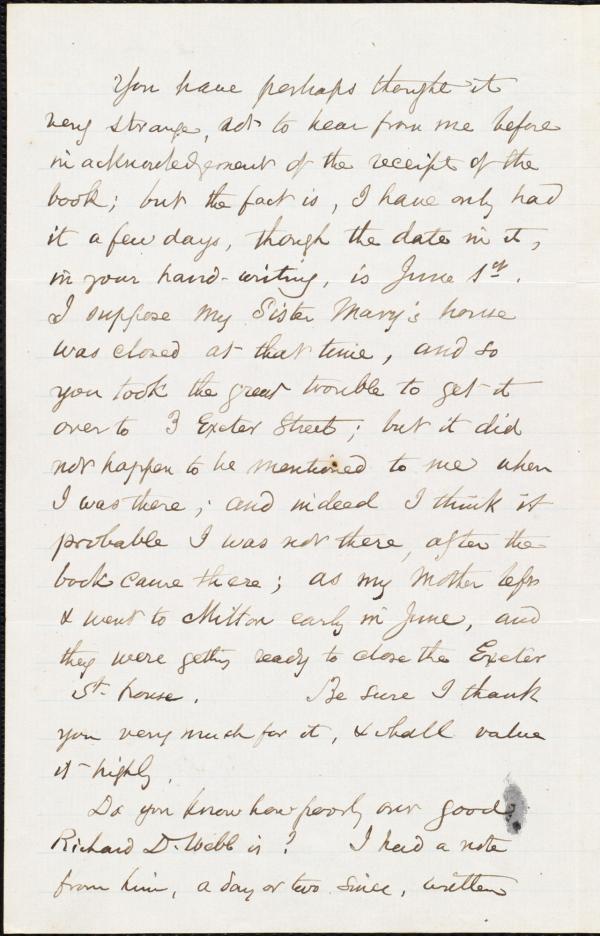 You have perhaps thought it
very strange, not to hear from me before
in acknowledgement of the receipt of the
book; but the fact is, I have only had
it a few days, though the date in it,
in your hand-writing, is June 1st.
I suppose my Sister Mary's house
was closed at that time, and so
you took the great trouble to get it
over to 3 Exeter Street; but it did
not happen to be mentioned to me when
I was there; and indeed I think it
probable I was not there, after the
book came there; as my Mother left
& went to Milton early in June, and
they were getting ready to close the Exeter
St. house. Be sure I thank
you very much for it, & shall value
it highly.
Do you know how poorly our good
Richard D. Webb is? I had a note
from him, a day or two since, written